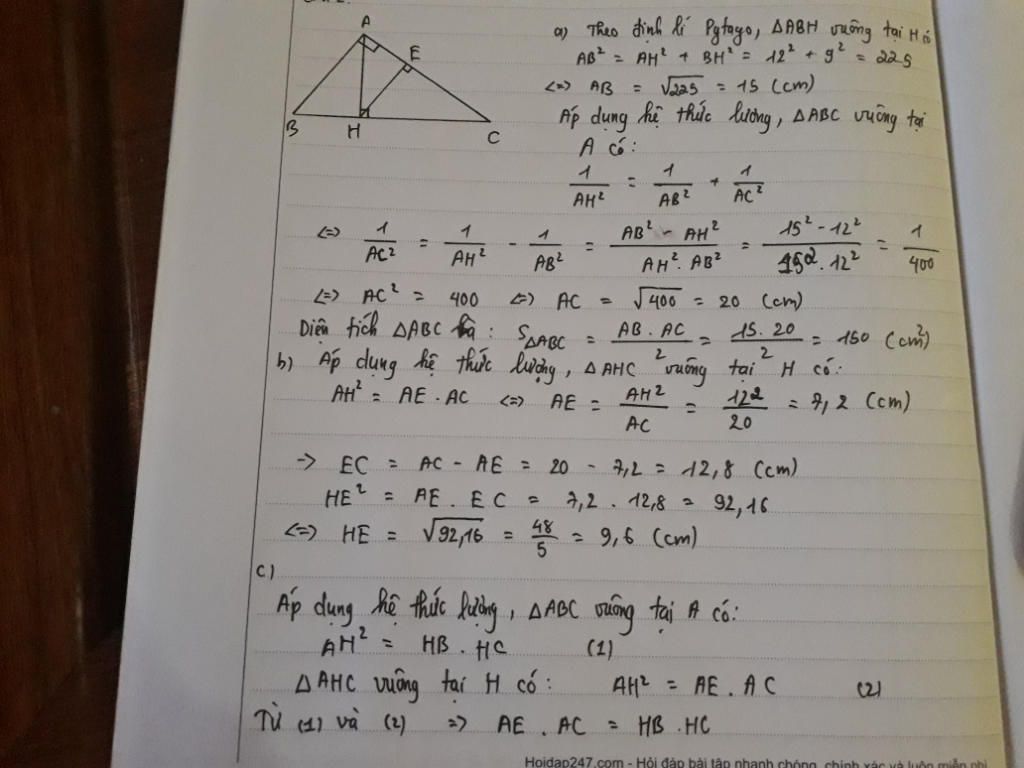 A
E
B
H
C
a) Theo định lí Pytago, △ABH vuông tại H có
AB² = AH² + BH² = 12² + 9² = 225
<=> AB = √225 = 15 (cm)
Áp dụng hệ thức lượng, △ABC vuông tại
A có:
1/AH² = 1/AB² + 1/AC²
<=> 1/AC² = 1/AH² - 1/AB² = (AB² - AH²)/(AH². AB²) = (15² - 12²)/(15². 12²) = 1/400
<=> AC² = 400 <=> AC = √400 = 20 (cm)
Diện tích △ABC là : S△ABC = (AB. AC)/2 = (15. 20)/2 = 150 (cm²)
b) Áp dụng hệ thức lượng, △AHC vuông tại H có:
AH² = AE . AC <=> AE = AH²/AC = 12²/20 = 7,2 (cm)
-> EC = AC - AE = 20 - 7,2 = 12,8 (cm)
HE² = AE . EC = 7,2 . 12,8 = 92,16
<=> HE = √92,16 = 48/5 = 9,6 (cm)
c)
Áp dụng hệ thức lượng, △ABC vuông tại A có:
AH² = HB . HC (1)
△AHC vuông tại H có: AH² = AE . AC (2)
Từ (1) và (2) => AE . AC = HB .HC
Hoidap247.com - Hỏi đáp bài tập nhanh chóng, chính xác và luôn miễn phí